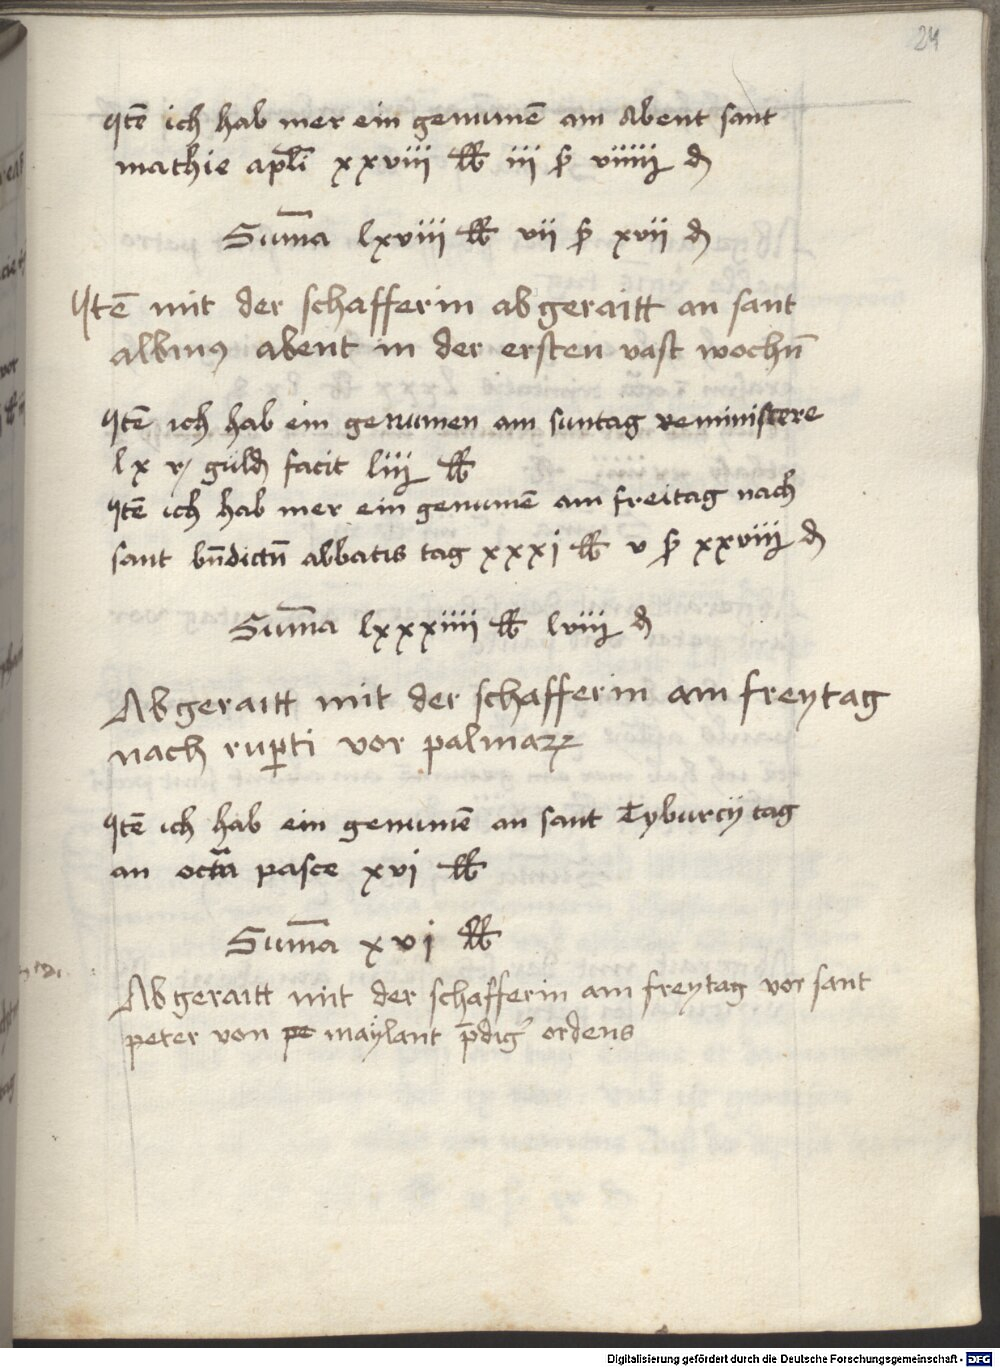 24
Itē ich hab mer ein genumē am Abent sant
mathie apl̄i xxviii lb iii ß viiiij d
Sum̄a lxviii lb vii ß xvii d
Itē mit der schafferin abgeraitt an sant
albinꝰ abent in der ersten vast wochn̄
Itē ich hab ein genumen am suntag reminiscere
lx r guld facit liij lb
Itē ich hab mer ein genumē am freitag nach
sant bn̄dictn̄ abbatis tag xxxi lb v ß xxviiij d
Sum̄a lxxxiiii lb lviij d
Abgeraitt mit der schafferin am freytag
nach ruꝑti vor palmaꝝ
Itē ich hab ein genumē an sant Tyburcij tag
an octa̅ pasce xvi lb
Sum̄a xvi lb
Abgeraitt mit der schafferin am freytag vor sant
peter von pe maÿlant p̄dig' ordens
Digitalisierung gefördert durch die Deutsche Forschungsgemeinschaft - DFG